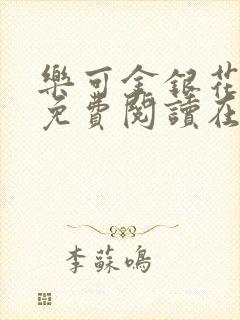 樂可金銀花
免費閱讀在
李蘇鳴